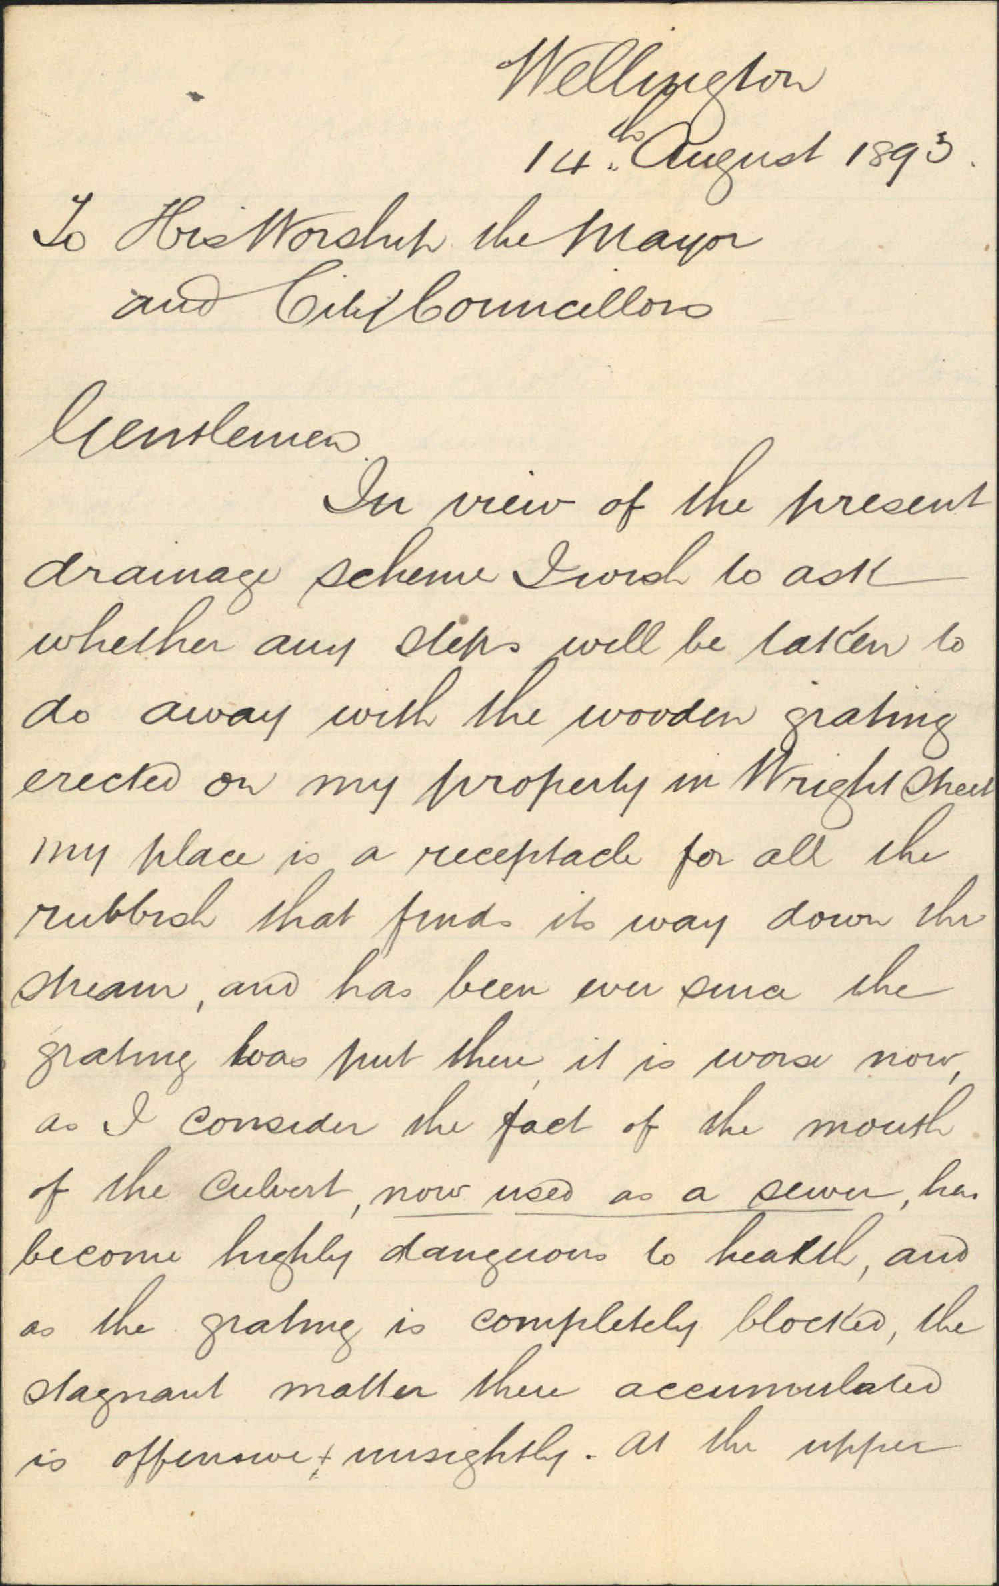 Wellington
14th August 1893.
To His Worship the Mayor
and City Councillors
Gentlemen
In view of the present
drainage scheme I wish to ask
whether any steps will be taken to
do away with the wooden grating
erected on my property in Wright Street
my place is a receptacle for all the
rubbish that finds its way down the
stream, and has been ever since the
grating was put there, it is worse now,
as I consider the fact of the mouth
of the culvert, now used as a sewer, has
become highly dangerous to health, and
as the grating is completely blocked, the
stagnant matter there accumulated
is offensive & unsightly. At the upper